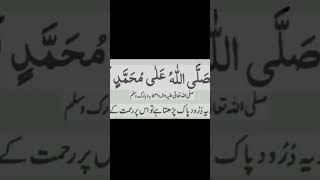 صَلَّى اللّٰهُ عَلٰى مُحَمَّدٍ
صلی اللہ تعالیٰ علیہ والہ واصحابہ وبارک وسلم
یہ دُرُود پاک پڑھتا ہے تو اس پر رحمت کے
یہ دُرُود پاک
رحمت کے